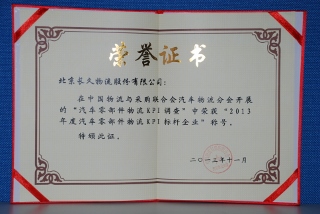 荣誉证书
北京长久物流股份有限公司：
在中国物流与采购联合会汽车物流分会开展
的“汽车零部件物流KPI调查”中荣获“2013
年度汽车零部件物流KPI标杆企业”称号。
特颁此证。
二〇一三年十一月